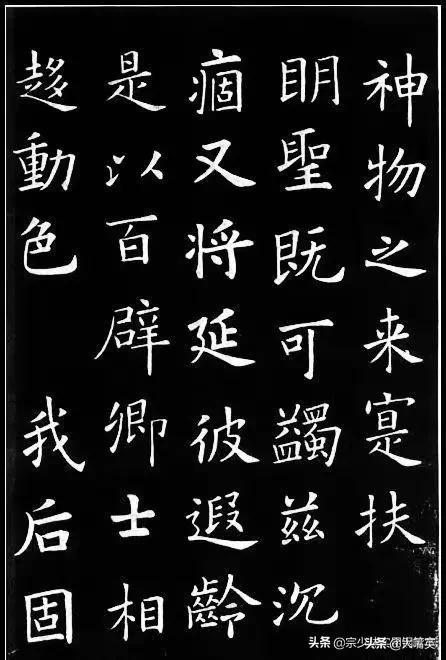 神物之来寔扶
眀聖既可蠲兹沉
痼又将延彼遐齡
是以百辟卿士相
趍動色 我后固
头条 @宗少
头条